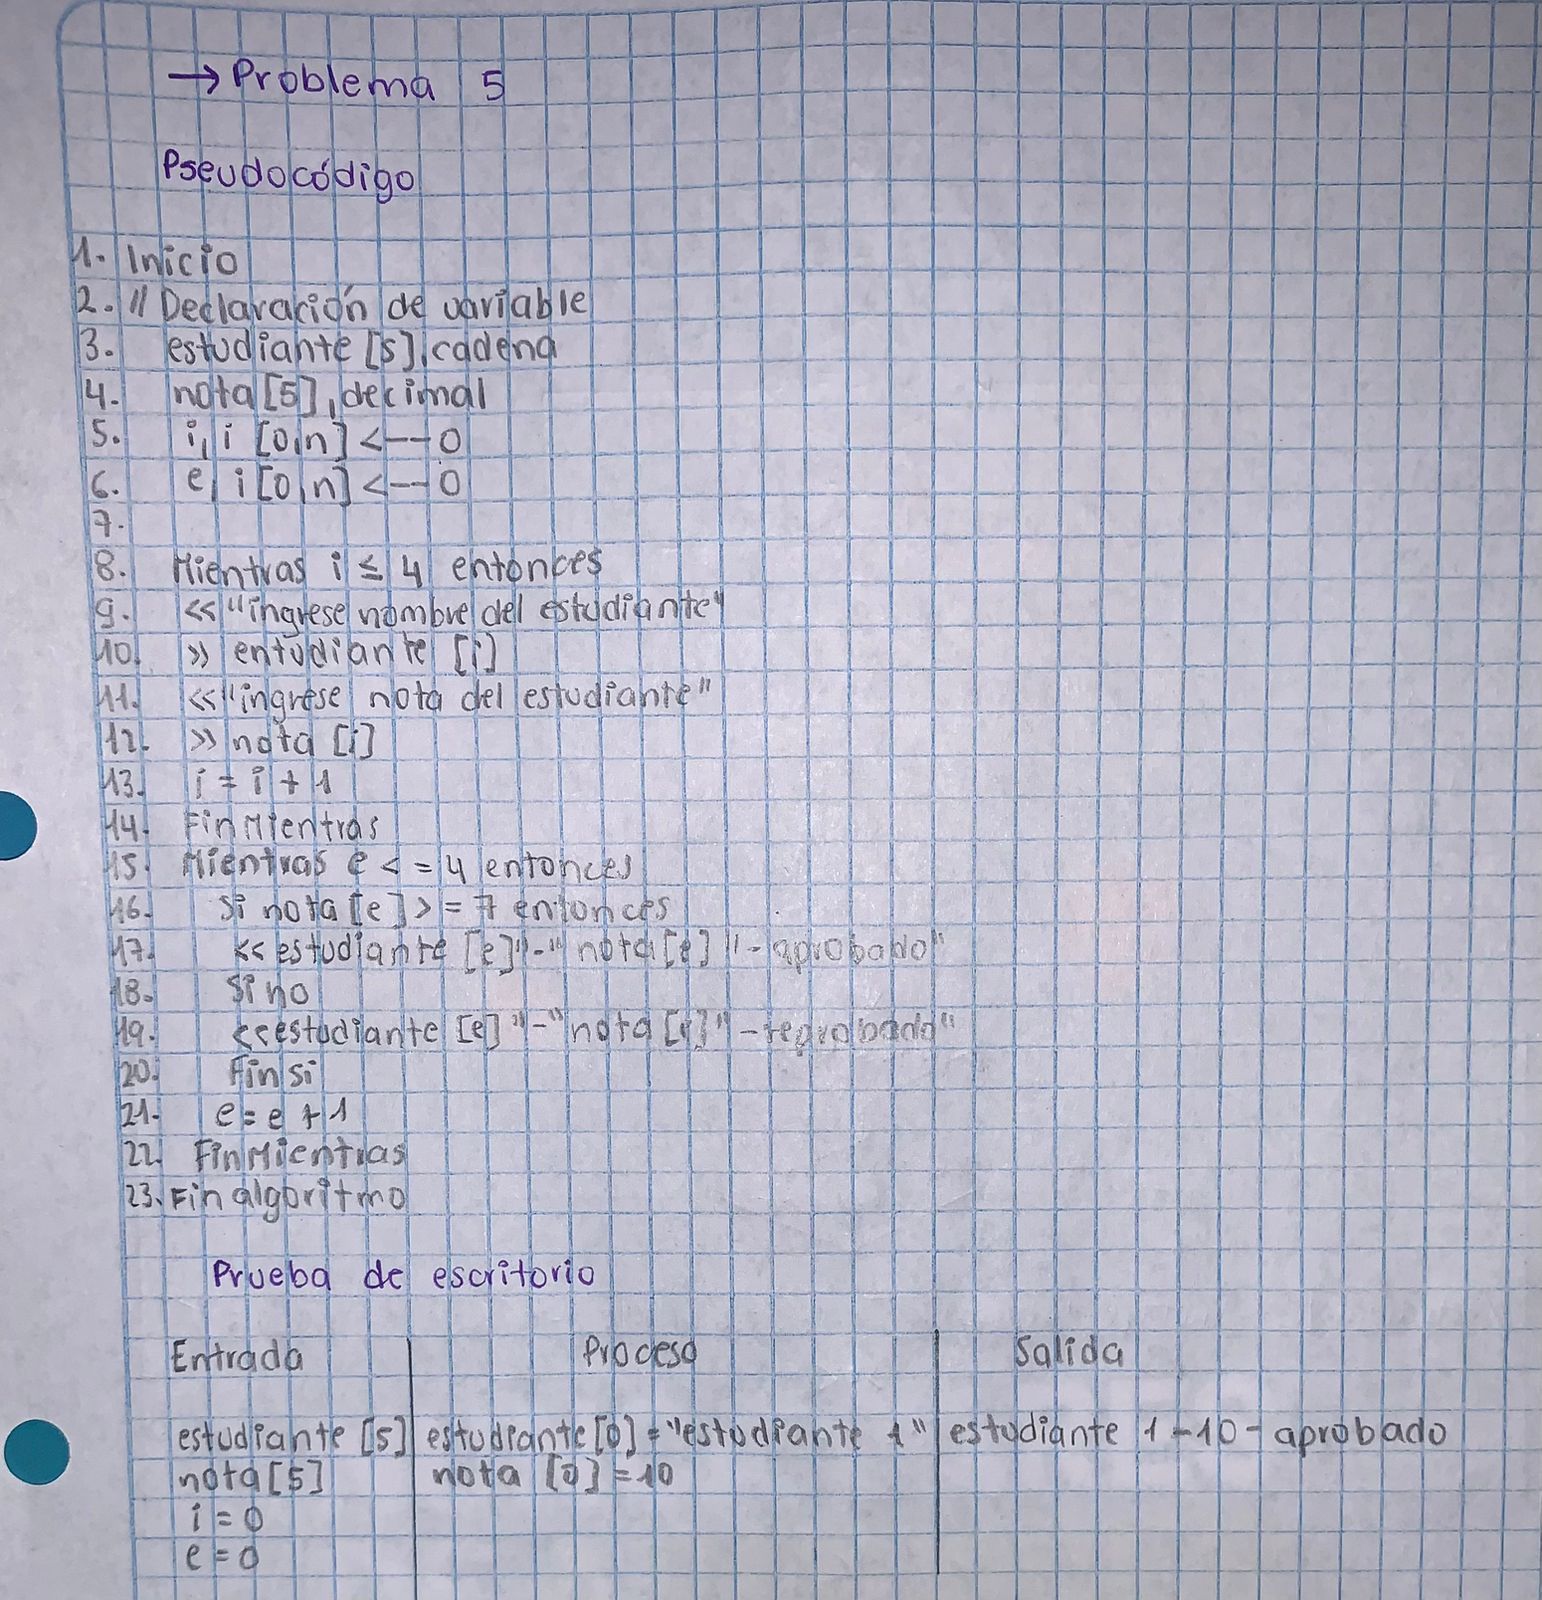 → Problema 5
Pseudocódigo
1. Inicio
2. // Declaración de variable
3. estudiante [5], cadena
4. nota [5], decimal
5. i, i [0,n] <-- 0
6. e, i [0,n] <-- 0
7.
8. Mientras i ≤ 4 entonces
9. << "ingrese nombre del estudiante"
10. >> entudiante [i]
11. << "ingrese nota del estudiante"
12. >> nota [i]
13. i = i + 1
14. Fin Mientras
15. Mientras e < = 4 entonces
16. Si nota [e] > = 7 entonces
17. << estudiante [e] "-" nota [e] "- aprobado"
18. Si no
19. << estudiante [e] "-" nota [e] "- reprobado"
20. Fin si
21. e = e + 1
22. Fin Mientras
23. Fin algoritmo
Prueba de escritorio
Entrada Proceso Salida
estudiante [5] estudiante [0] = "estudiante 1" estudiante 1 - 10 - aprobado
nota [5] nota [0] = 10
i = 0
e = 0